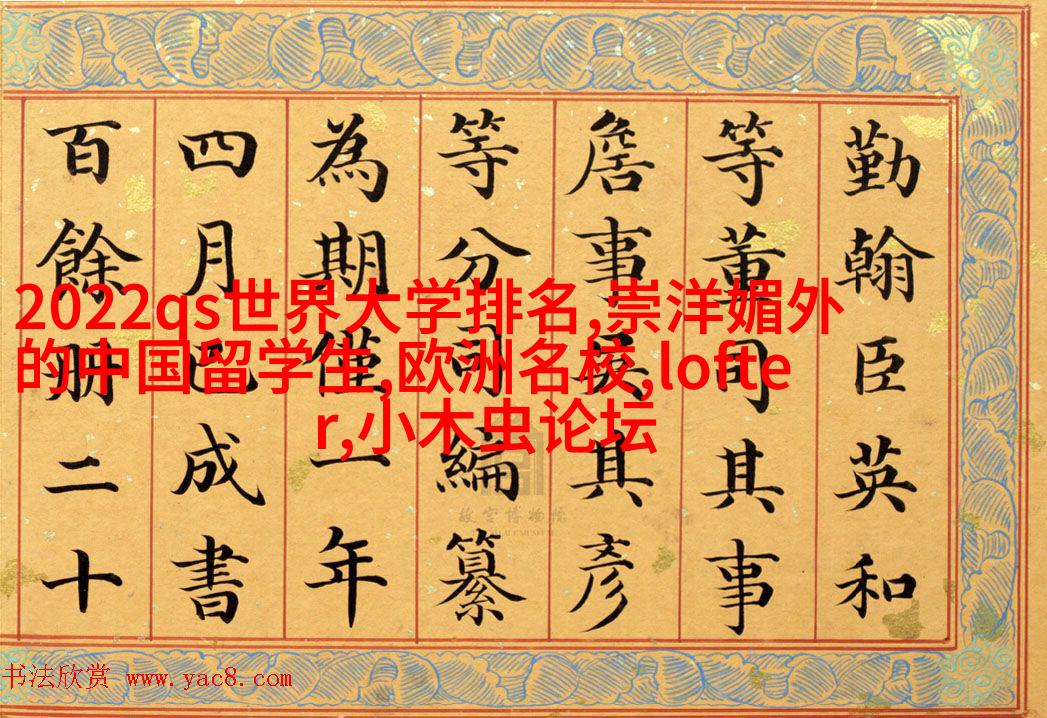 勤翰臣英和
等董司其事
詹事其彥
等分司編纂
為期僅一年
四月已成書
百餘冊二十
2022qs世界大学排名,崇洋媚外
的中国留学生,欧洲名校,lofte
r,小木虫论坛
故宫博物院
书法欣赏 www.yac8.com